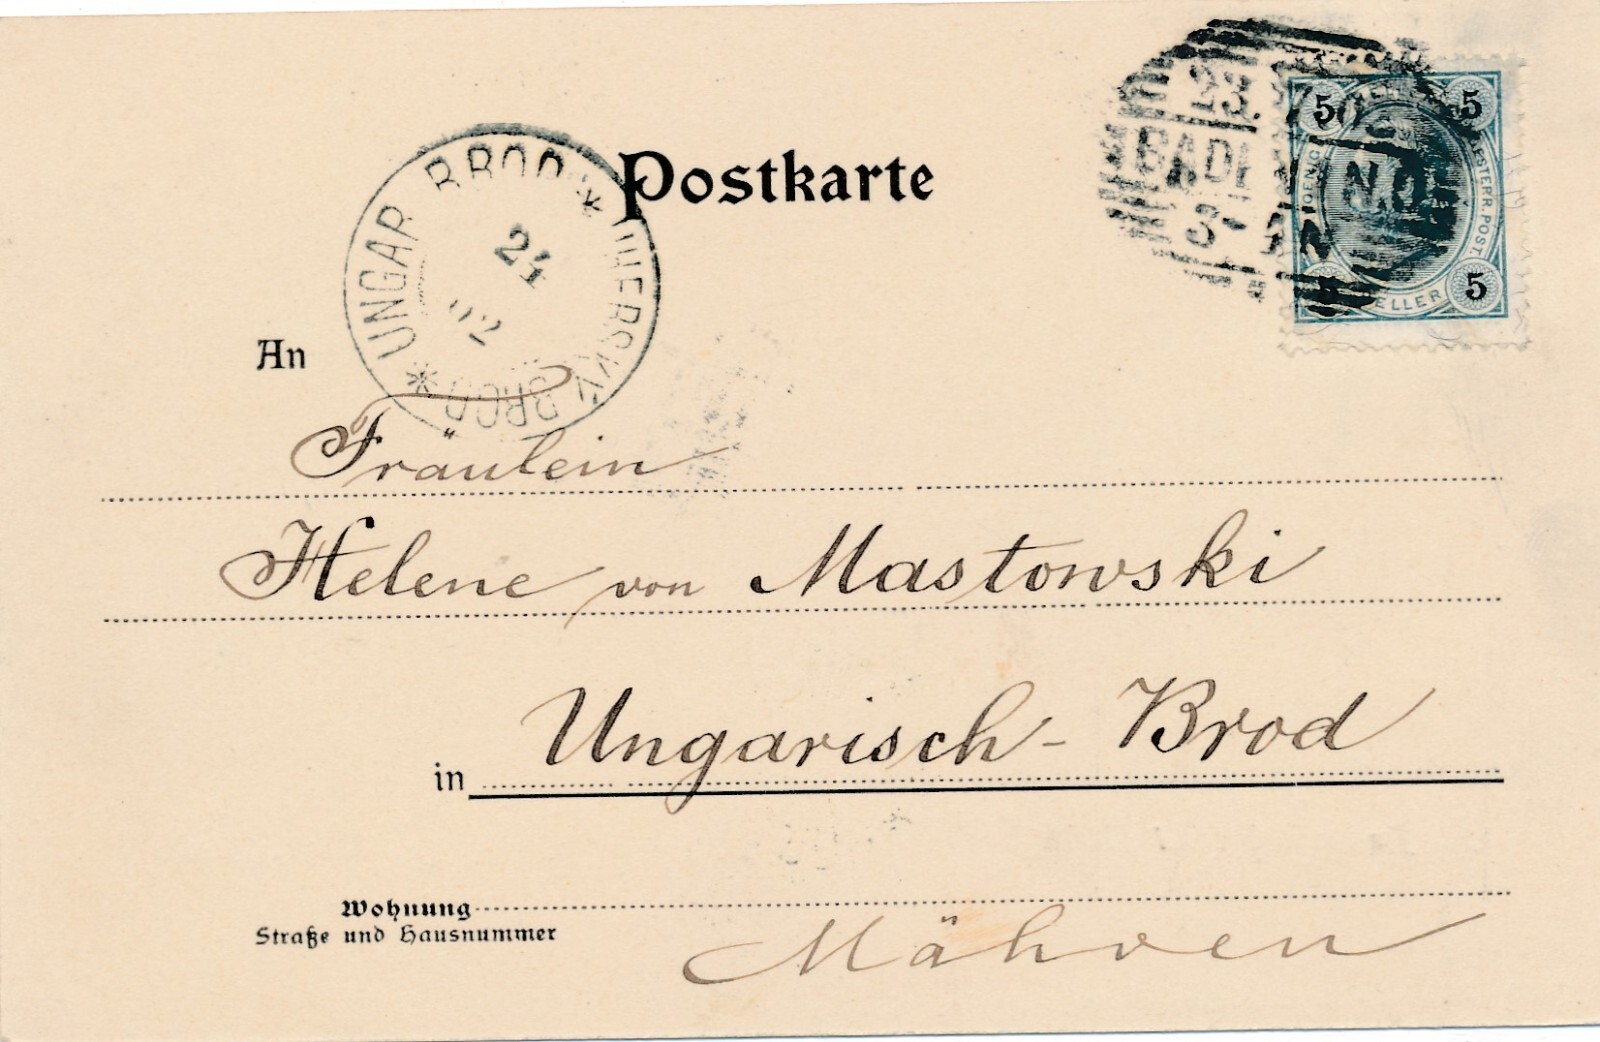 Postkarte
UNGAR BROD * UHERSKÝ BROD *
24
02
23
BADEN N.Ö.
5 5
5
HELLER
An
Fräulein
Helene von Mastowski
in Ungarisch-Brod
Wohnung
Straße und Hausnummer
Mähren